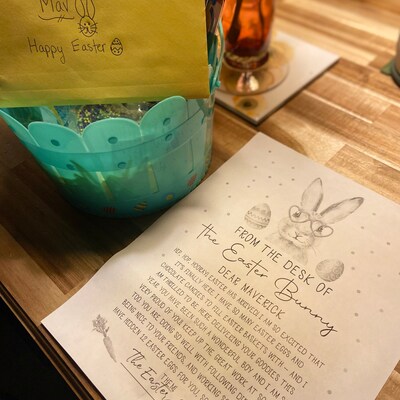 Mav
Happy Easter
FROM THE DESK OF
the Easter Bunny
DEAR MAVERICK,
HIP HOP HOORAY EASTER HAS ARRIVED! I AM SO EXCITED THAT
IT'S FINALLY HERE. I HAVE SO MANY EASTER EGGS AND
CHOCOLATE CANDIES TO FILL EASTER BASKETS WITH - AND I
AM THRILLED TO BE HERE DELIVERING YOUR GOODIES THIS
YEAR. YOU HAVE BEEN SUCH A WONDERFUL BOY AND I AM
VERY PROUD OF YOU! KEEP UP THE GREAT WORK AT
TOO. YOU ARE DOING SO WELL WITH FOLLOWING
BEING NICE TO YOUR FRIENDS, AND WORKING
HAVE HIDDEN 12 EASTER EGGS FOR YOU, SO
THEM
The Easter